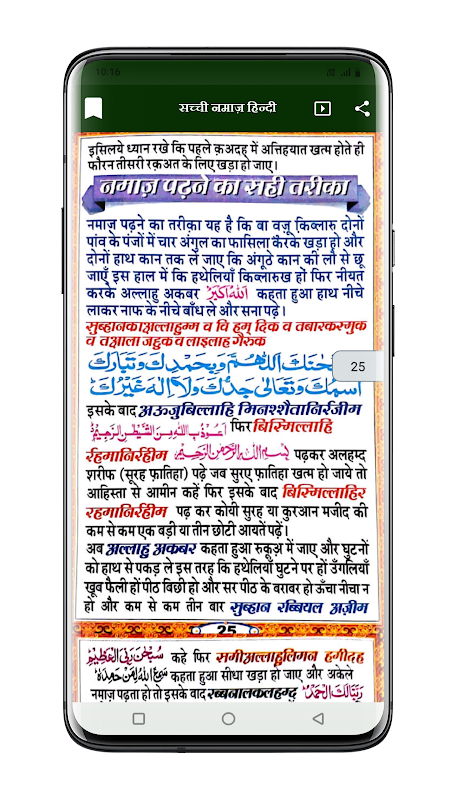 10:16
सच्ची नमाज़ हिन्दी
इसलिये ध्यान रखे कि पहले क़अदह में अत्तिहयात खत्म होते ही
फौरन तीसरी रक़अत के लिए खड़ा हो जाए।
नमाज़ पढ़ने का सही तरीका
नमाज़ पढ़ने का तरीक़ा यह है कि बा वज़ू क़िब्लारु दोनों
पांव के पंजों में चार अंगुल का फासिला करके खड़ा हो और
दोनों हाथ कान तक ले जाए कि अंगूठे कान की लौ से छू
जाएँ इस हाल में कि हथेलियाँ किब्लारुख हों फिर नीयत
करके अल्लाहु अकबर اَللّٰهُ اَكْبَرُ कहता हुआ हाथ नीचे
लाकर नाफ के नीचे बाँध ले और सना पढ़े।
सुब्हानकाअल्लाहुम्म व बि हम् दिक व तबारकस्मुक
व तआला जद्दुक व लाइलाह गैरुक
حٰنَكَ اللّٰهُمَّ وَبِحَمْدِكَ وَتَبَارَكَ
اسْمُكَ وَتَعَالٰى جَدُّكَ وَلَآ اِلٰهَ غَيْرُكَ
25
इसके बाद अऊजुबिल्लाहि मिनश्शैतानिर्रजीम
اَعُوْذُ بِاللّٰهِ مِنَ الشَّيْطٰنِ الرَّجِيْمِ फिर बिस्मिल्लाहि
र्रहमानिर्रहीम بِسْمِ اللّٰهِ الرَّحْمٰنِ الرَّحِيْمِ पढ़कर अलहम्द
शरीफ (सूरह फ़ातिहा) पढ़े जब सुरए फ़ातिहा खत्म हो जाये तो
आहिस्ता से आमीन कहें फिर इसके बाद बिस्मिल्लाहिर
रहमानिर्रहीम पढ़ कर कोयी सुरह या कुरआन मजीद की
कम से कम एक बड़ी या तीन छोटी आयतें पढ़ें।
अब अल्लाहु अकबर कहता हुआ रुकूअ् में जाए और घुटनों
को हाथ से पकड़ ले इस तरह कि हथेलियाँ घुटने पर हों उँगलियाँ
खूब फैली हों पीठ बिछी हो और सर पीठ के बराबर हो ऊँचा नीचा न
हो और कम से कम तीन बार सुब्हान रब्बियल अज़ीम
25
سُبْحٰنَ رَبِّىَ الْعَظِيْمِ कहे फिर समीअल्लाहुलिमन हमीदह
سَمِعَ اللّٰهُ لِمَنْ حَمِدَهٗ कहता हुआ सीधा खड़ा हो जाए और अकेले
नमाज़ पढ़ता हो तो इसके बाद रब्बनालकलहम्द رَبَّنَا لَكَ الْحَمْدُ